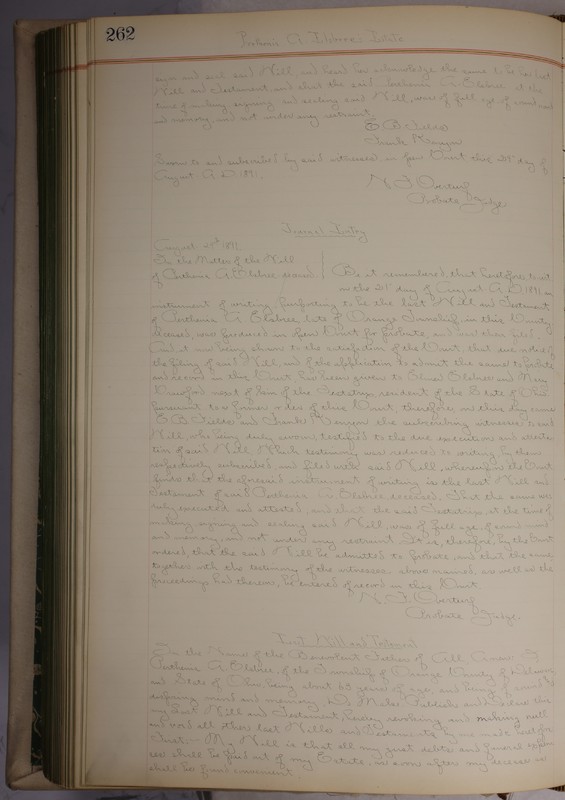 262
Estate
sign and seal said Will, and heard her acknowledge the same to be her last
Will and Testament, and that the said Parthenia A. Elsbree at the
time of making signing and sealing said Will, was of full age of sound mind
and memory, and not under any restraint.
Frank Kenyon
Sworn to and subscribed by said witnesses in open Court this 21st day of
August A.D. 1891.
N. F. Overturf
Probate Judge
Journal Entry
August 21st 1891.
In the Matter of the Will
of Parthenia A. Elsbree deceased
Be it remembered that heretofore to wit
on the 21st day of August A.D. 1891 an
instrument of writing, purporting to be the last Will and Testament
of Parthenia A. Elsbree, late of Orange Township in this County
deceased, was produced in open Court for probate, and was then filed
And it now being shown to the satisfaction of the Court, that due notice of
the filing of said Will, and of the application to admit the same to probate
and record in this Court, has been given to Elsbree and Mary
next of kin of the Testatrix resident of the State of Ohio
pursuant to a former order of this Court, therefore, on this day came
and Frank Kenyon the subscribing witnesses to said
Will, who being duly sworn testified to the due execution and attesta-
tion of said Will. Which testimony was reduced to writing, by them
respectively subscribed, and filed with said Will, whereupon the Court
finds that the aforesaid instrument of writing is the last Will and
Testament of said Parthenia A. Elsbree deceased, That the same was
duly executed and attested, and that the said Testatrix at the time of
making signing and sealing said Will was of full age, of sound mind
and memory, and not under any restraint. It is, therefore, by the Court
ordered, that the said Will be admitted to probate, and that the same
together with the testimony of the witnesses above named, as well as the
proceedings had thereon, be entered of record in this Court
N. F. Overturf
Probate Judge.
Last Will and Testament
In the Name of the Benevolent Father of All, Amen: I
Parthenia A. Elsbree, of the Township of Orange County of Delaware
and State of Ohio, being about 63 years of age, and being of sound &
disposing mind and memory, Do Make Publish and Declare this
my Last Will and Testament, hereby revoking and making null
and void all other last Wills and Testaments by me made heretofore
First.— My Will is that all my just debts and funeral expen-
ces shall be paid out of my Estate, as soon after my decease as
shall be found convenient.